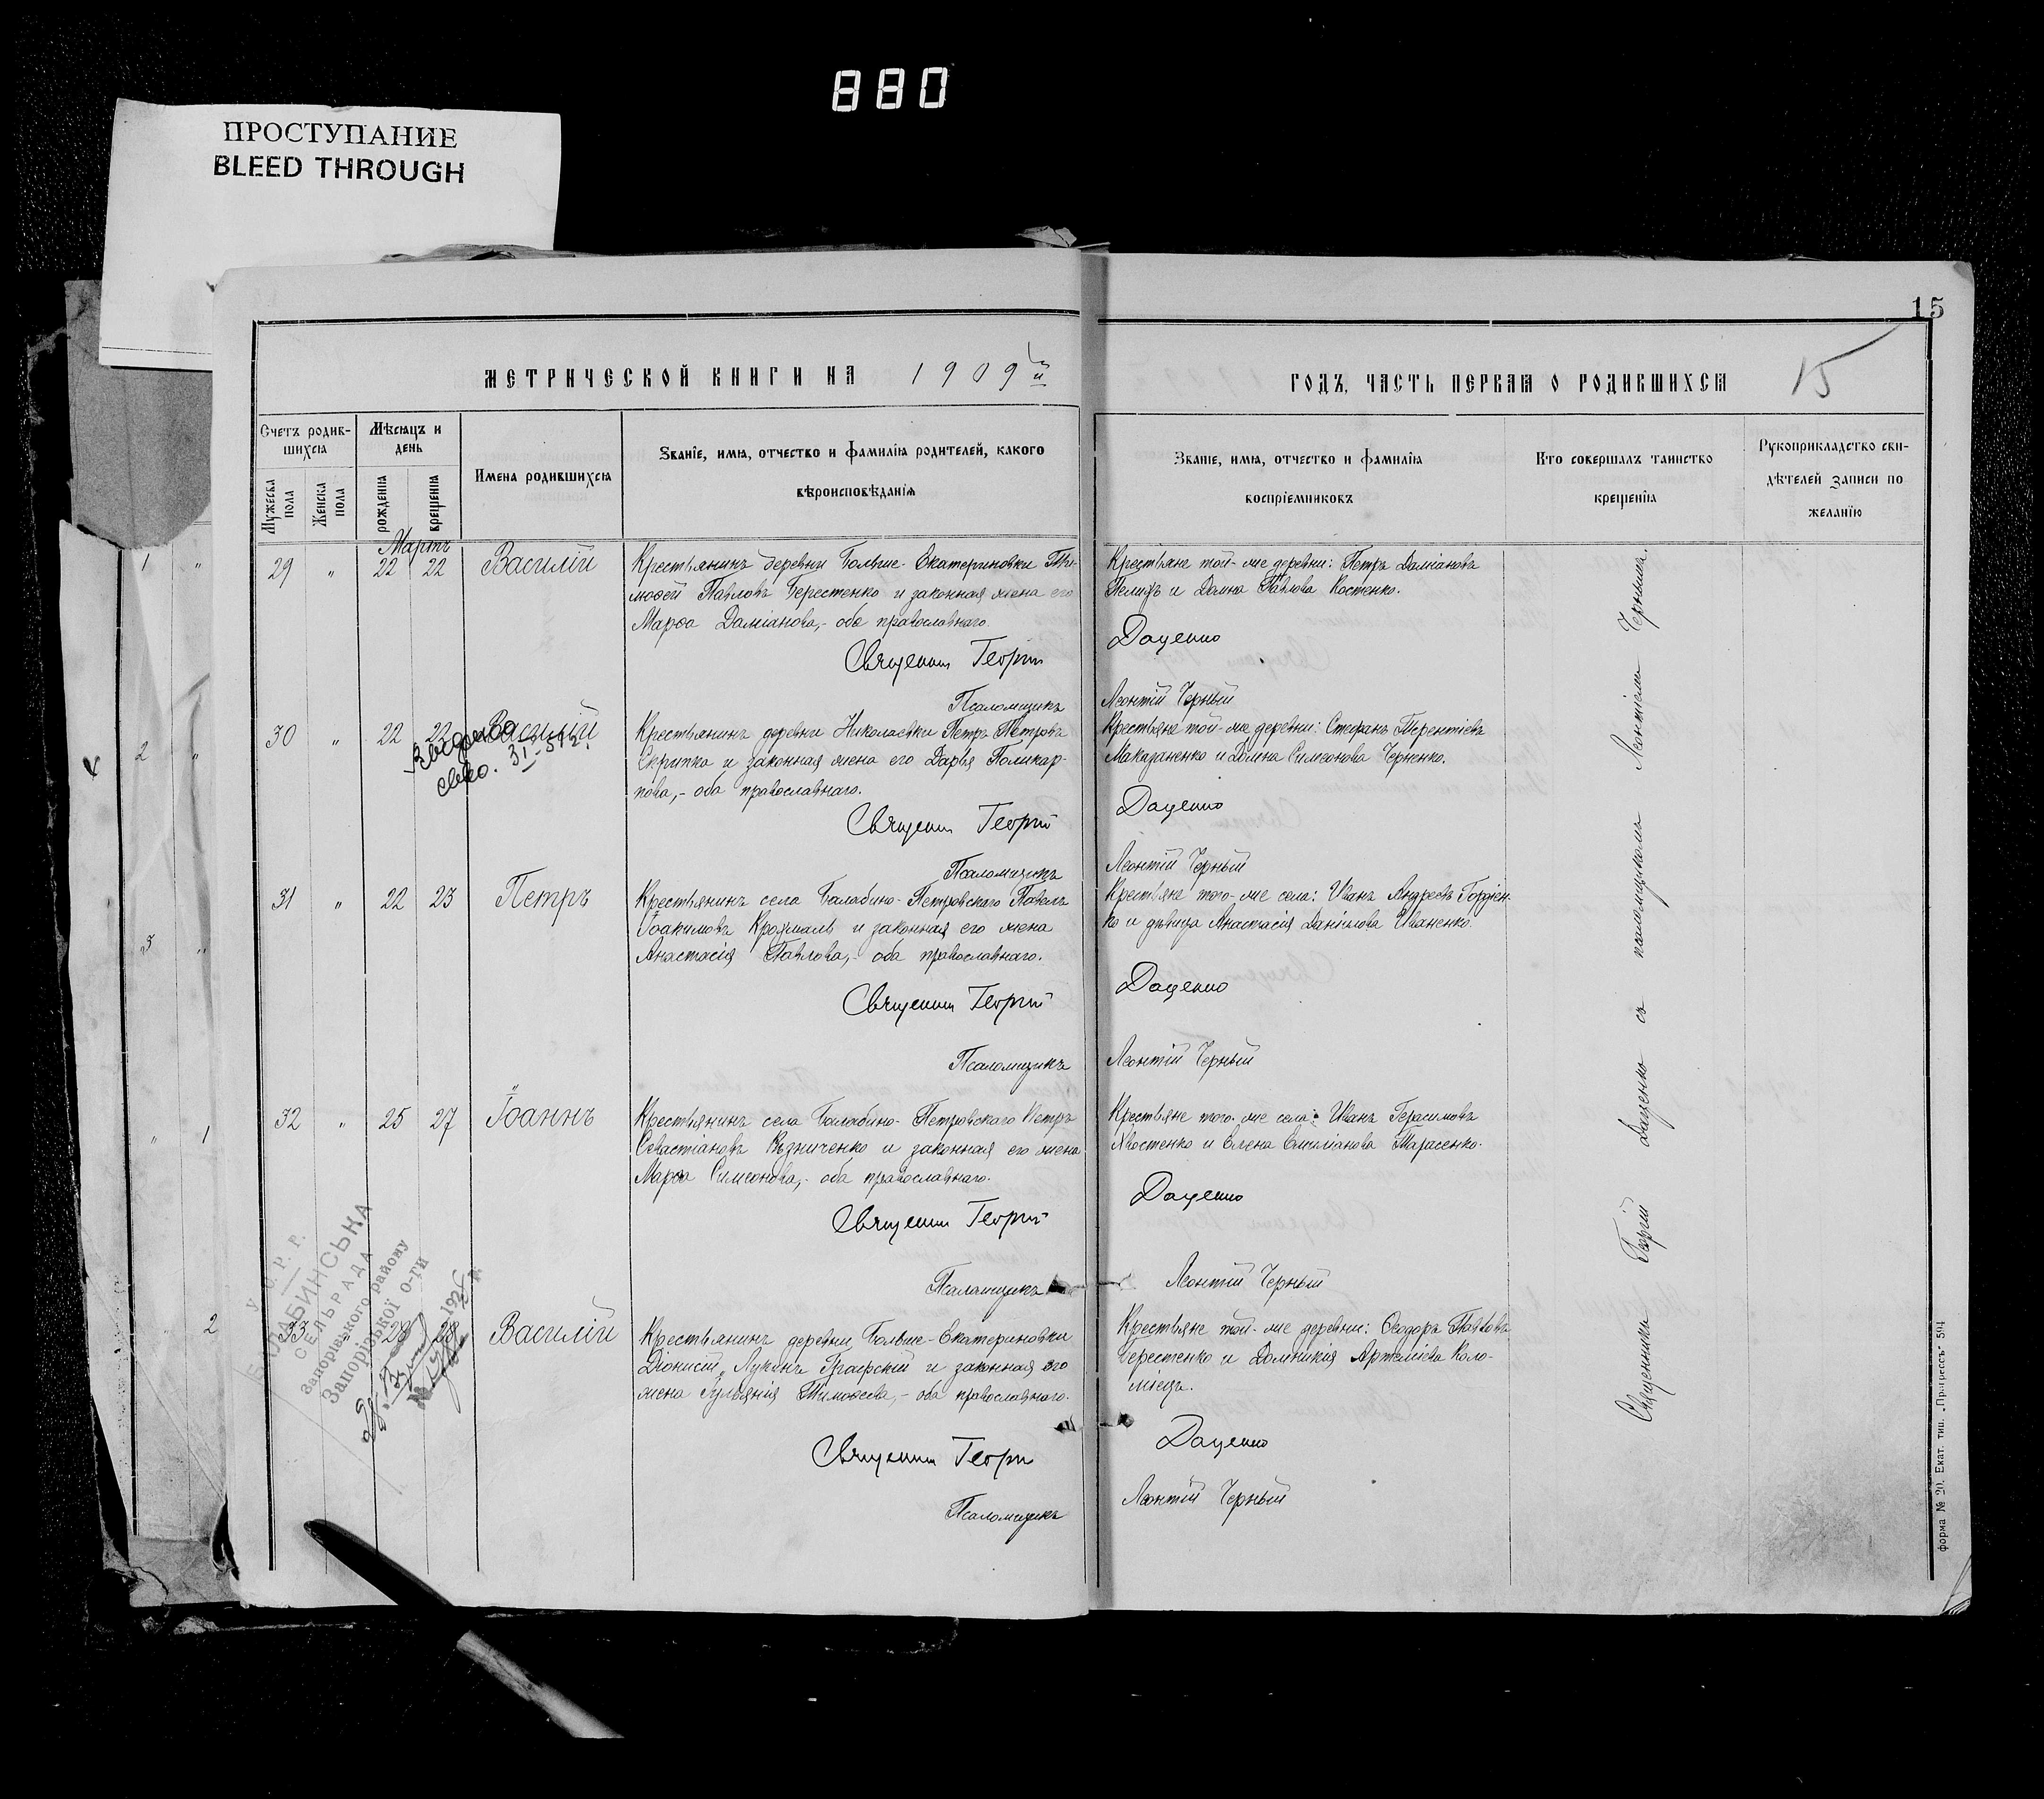 880
ПРОСТУПАНИЕ
BLEED THROUGH
15
МЕТРИЧЕСКОЙ КНИГИ НА 1909й
ГОДЪ, ЧАСТЬ ПЕРВАЯ О РОДИВШИХСЯ
15
Счетъ родив-
шихся
Мѣсяцъ и
день
Имена родившихся
Званіе, имя, отчество и фамилія родителей, какого
вѣроисповѣданія
Званіе, имя, отчество и фамилія
воспріемниковъ
Кто совершалъ таинство
крещенія
Рукоприкладство сви-
дѣтелей записи по
желанію
Мужеска
пола
Женска
пола
рожденія
крещенія
Мартъ
29 " 22 22 Василій
Крестьянинъ деревни Больше-Екатериновки Ти-
моѳей Павловъ Берестенко и законная жена его
Марѳа Даміанова,- оба православнаго.
Крестьяне той-же деревни: Петръ Даміановъ
и Домна Павлова Костенко.
Священник Георгій Даценко
Псаломщикъ Леонтій Черный
30 " 22 22 Василій
31-
Крестьянинъ деревни Николаевки Петръ Петровъ
Скрипка и законная жена его Дарья Поликар-
пова,- оба православнаго.
Крестьяне той-же деревни: Стефанъ Терентіевъ
Макаданенко и Домна Симеонова Черненко.
Священник Георгій Даценко
Псаломщикъ Леонтій Черный
31 " 22 23 Петръ
Крестьянинъ села Балабино-Петровскаго Павелъ
Іоакимовъ Крохмаль и законная его жена
Анастасія Павлова,- оба православнаго.
Крестьяне того-же села: Иванъ Андреевъ Гордіен-
ко и дѣвица Анастасія Даніилова Иваненко.
Священник Георгій Даценко
Псаломщикъ Леонтій Черный
32 " 25 27 Іоаннъ
Крестьянинъ села Балабино-Петровскаго Петръ
Севастіановъ Рѣзниченко и законная его жена
Марѳа Симеонова,- оба православнаго.
Крестьяне того-же села: Иванъ Герасимовъ
Хвостенко и Елена Емиліанова Тарасенко.
Священник Георгій Даценко
Псаломщикъ Леонтій Черный
33 28 28 Василій
Крестьянинъ деревни Больше-Екатериновки
Діонисій Лукинъ и законная его
жена Іуліанія Тимоѳеева,- оба православнаго.
Крестьяне той-же деревни: Ѳеодоръ Павловъ
Берестенко и Домникія Артеміева Коло-
міецъ.
Священник Георгій Даценко
Псаломщикъ Леонтій Черный
Священникъ Георгій Даценко съ псаломщикомъ Леонтіемъ Чернымъ.
У. С. Р. Р.
БАЛАБИНСЬКА
СЕЛЬРАДА
Запорізького району
Запорізької о-ги
192
1 "
2 "
3 "
" 1
2
Форма № 20. Екат. тип. „Прогрессъ" 594